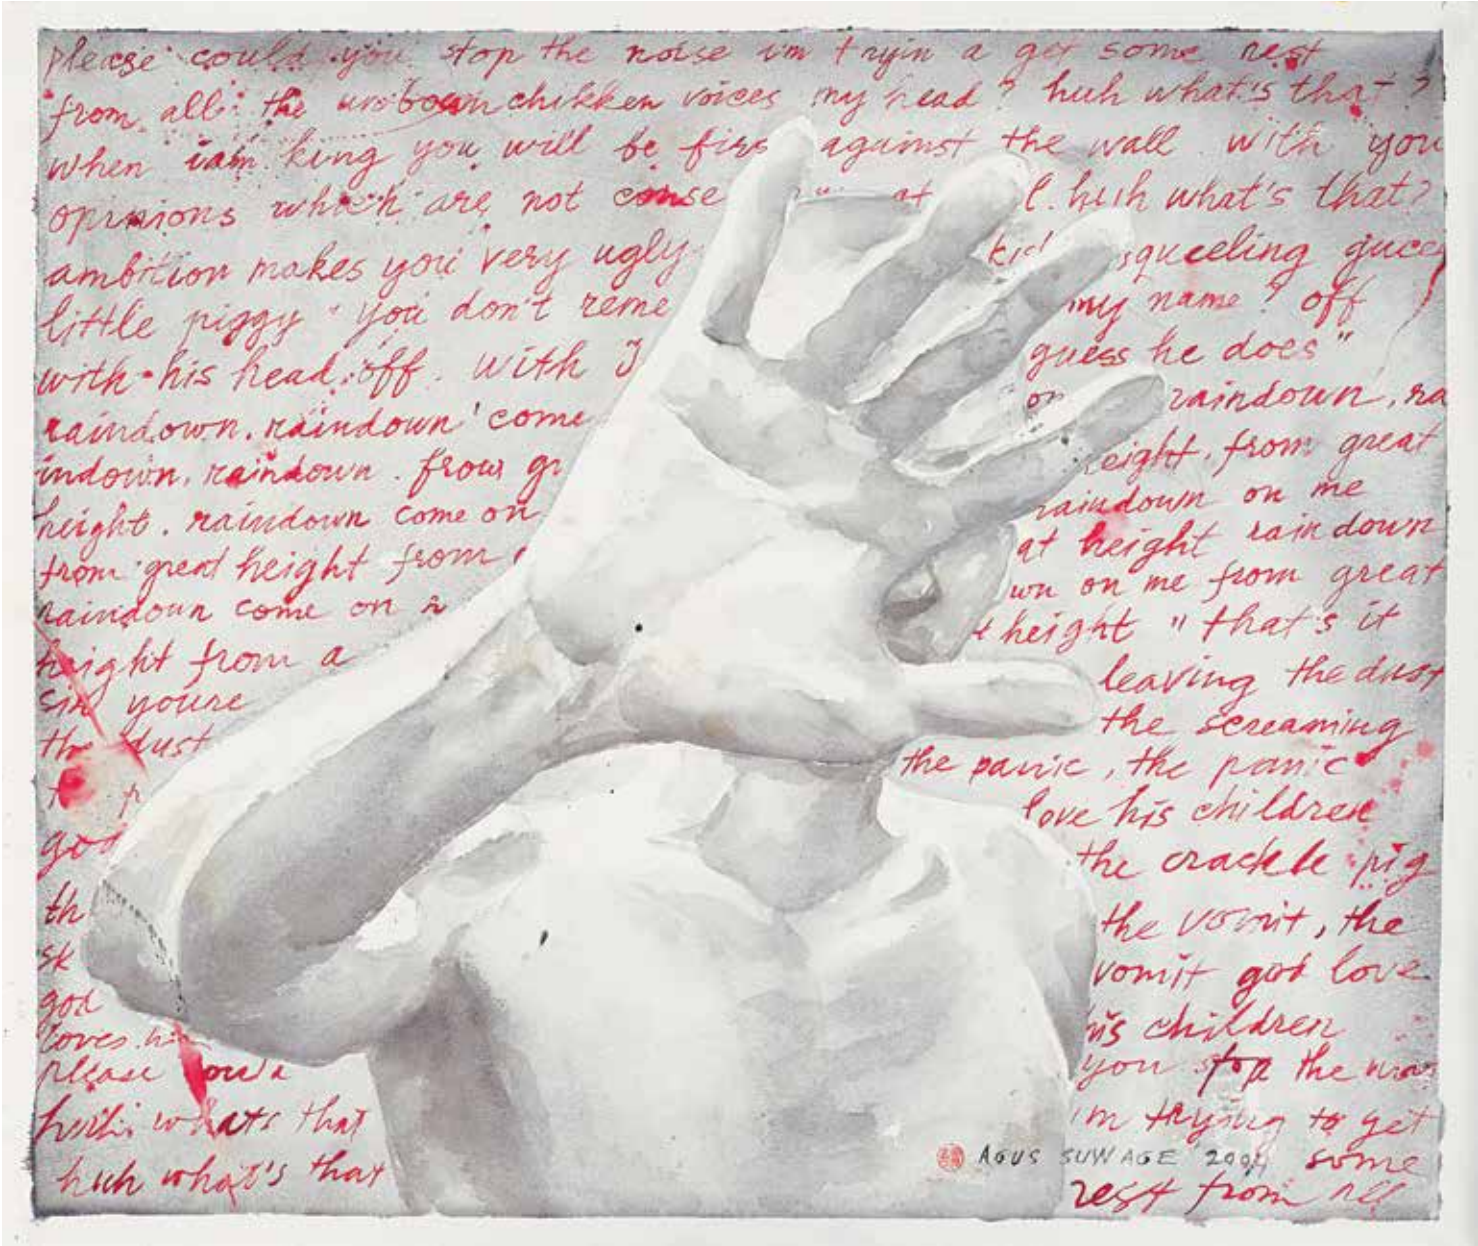 please could you stop the noise im tryin a get some rest
from all the unboun chikken voices my head ? huh what's that ?
when iam king you will be firs against the wall with you
opinions which are not conse at l. huh what's that?
ambition makes you very ugly kic squeeling gucc
little piggy " you don't reme my name ? off
with his head off. with I guess he does"
raindown. raindown' come on raindown, ra
indown. raindown. from gr eight. from great
height. raindown come on raindown on me
from great height from at height rain down
raindown come on wn on me from great
height from a t height " that's it
sin youre leaving the dust
th dust the screaming
the panic, the panic
p love his children
god the crackle pig
th the vomit, the
sk vomit god love
god his children
loves hi you stop the
please im trying to get
huh whats that some
huh what's that rest from all
AGUS SUWAGE 2004